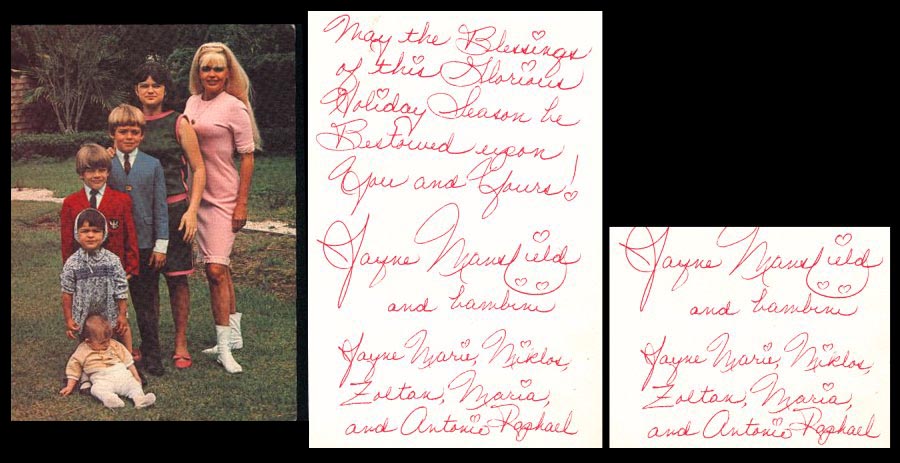 May the Blessings
of this Glorious
Holiday Season be
Bestowed upon
You and Yours!
Jayne Mansfield
and bambini
Jayne Marie, Miklos,
Zoltan, Maria,
and Antonio Raphael
Jayne Mansfield
and bambini
Jayne Marie, Miklos,
Zoltan, Maria,
and Antonio Raphael